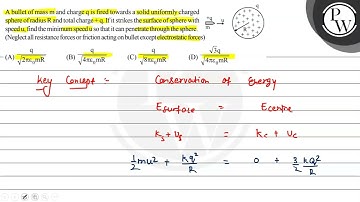 A bullet of mass m and charge q is fired towards a solid uniformly charged
sphere of radius R and total charge + q. If it strikes the surface of sphere with
speed u, find the minimum speed u so that it can penetrate through the sphere.
(Neglect all resistance forces or friction acting on bullet except electrostatic forces)
(A) q/√(2πε₀mR) (B) q/√(4πε₀mR) (C) q/√(8πε₀mR) (D) √3q/√(4πε₀mR)
Key Concept :- Conservation of Energy
E surface = E centre
Ks + Us = Kc + Uc
1/2 mu² + kq²/R = 0 + 3/2 kq²/R
PW